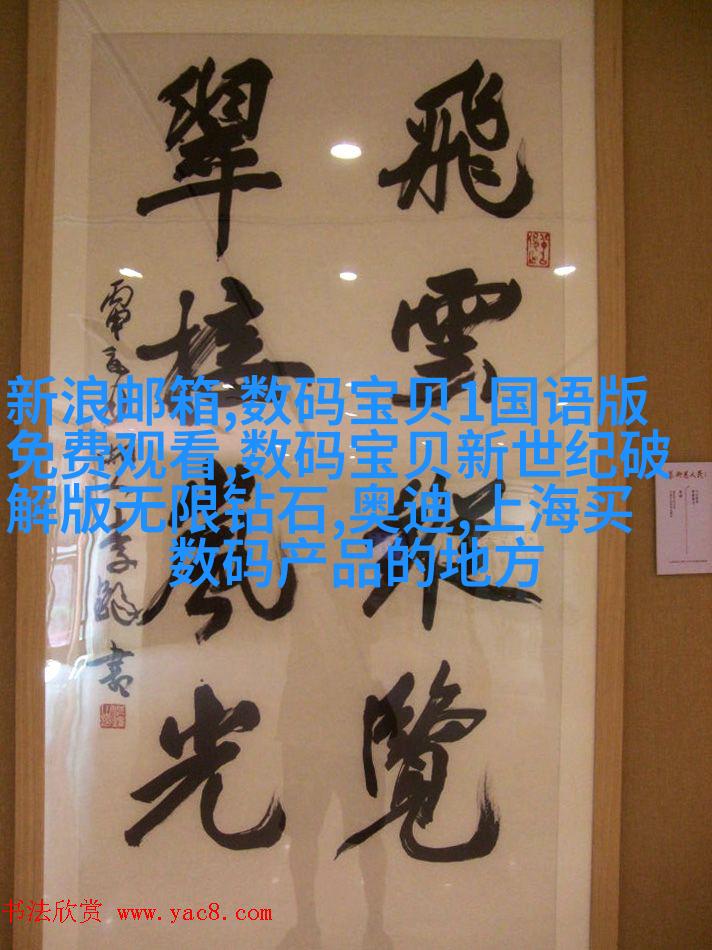 飛雲縱覽
翠風光
書
新浪邮箱,数码宝贝1国语版
免费观看,数码宝贝新世纪破
解版无限钻石,奥迪,上海买
数码产品的地方
书法欣赏 www.yac8.com